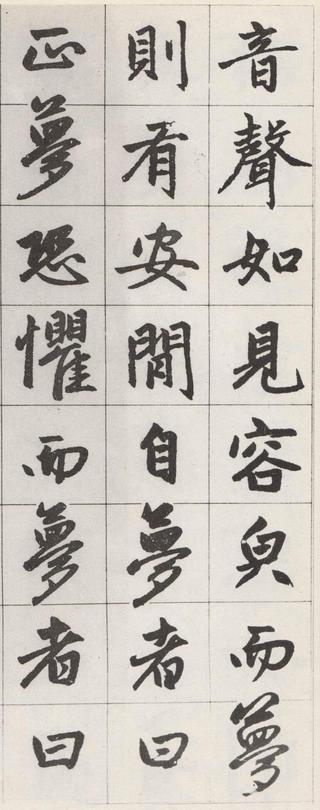 音聲如見容皃而夢
則有安閒自夢者曰
正夢恐懼而夢者曰